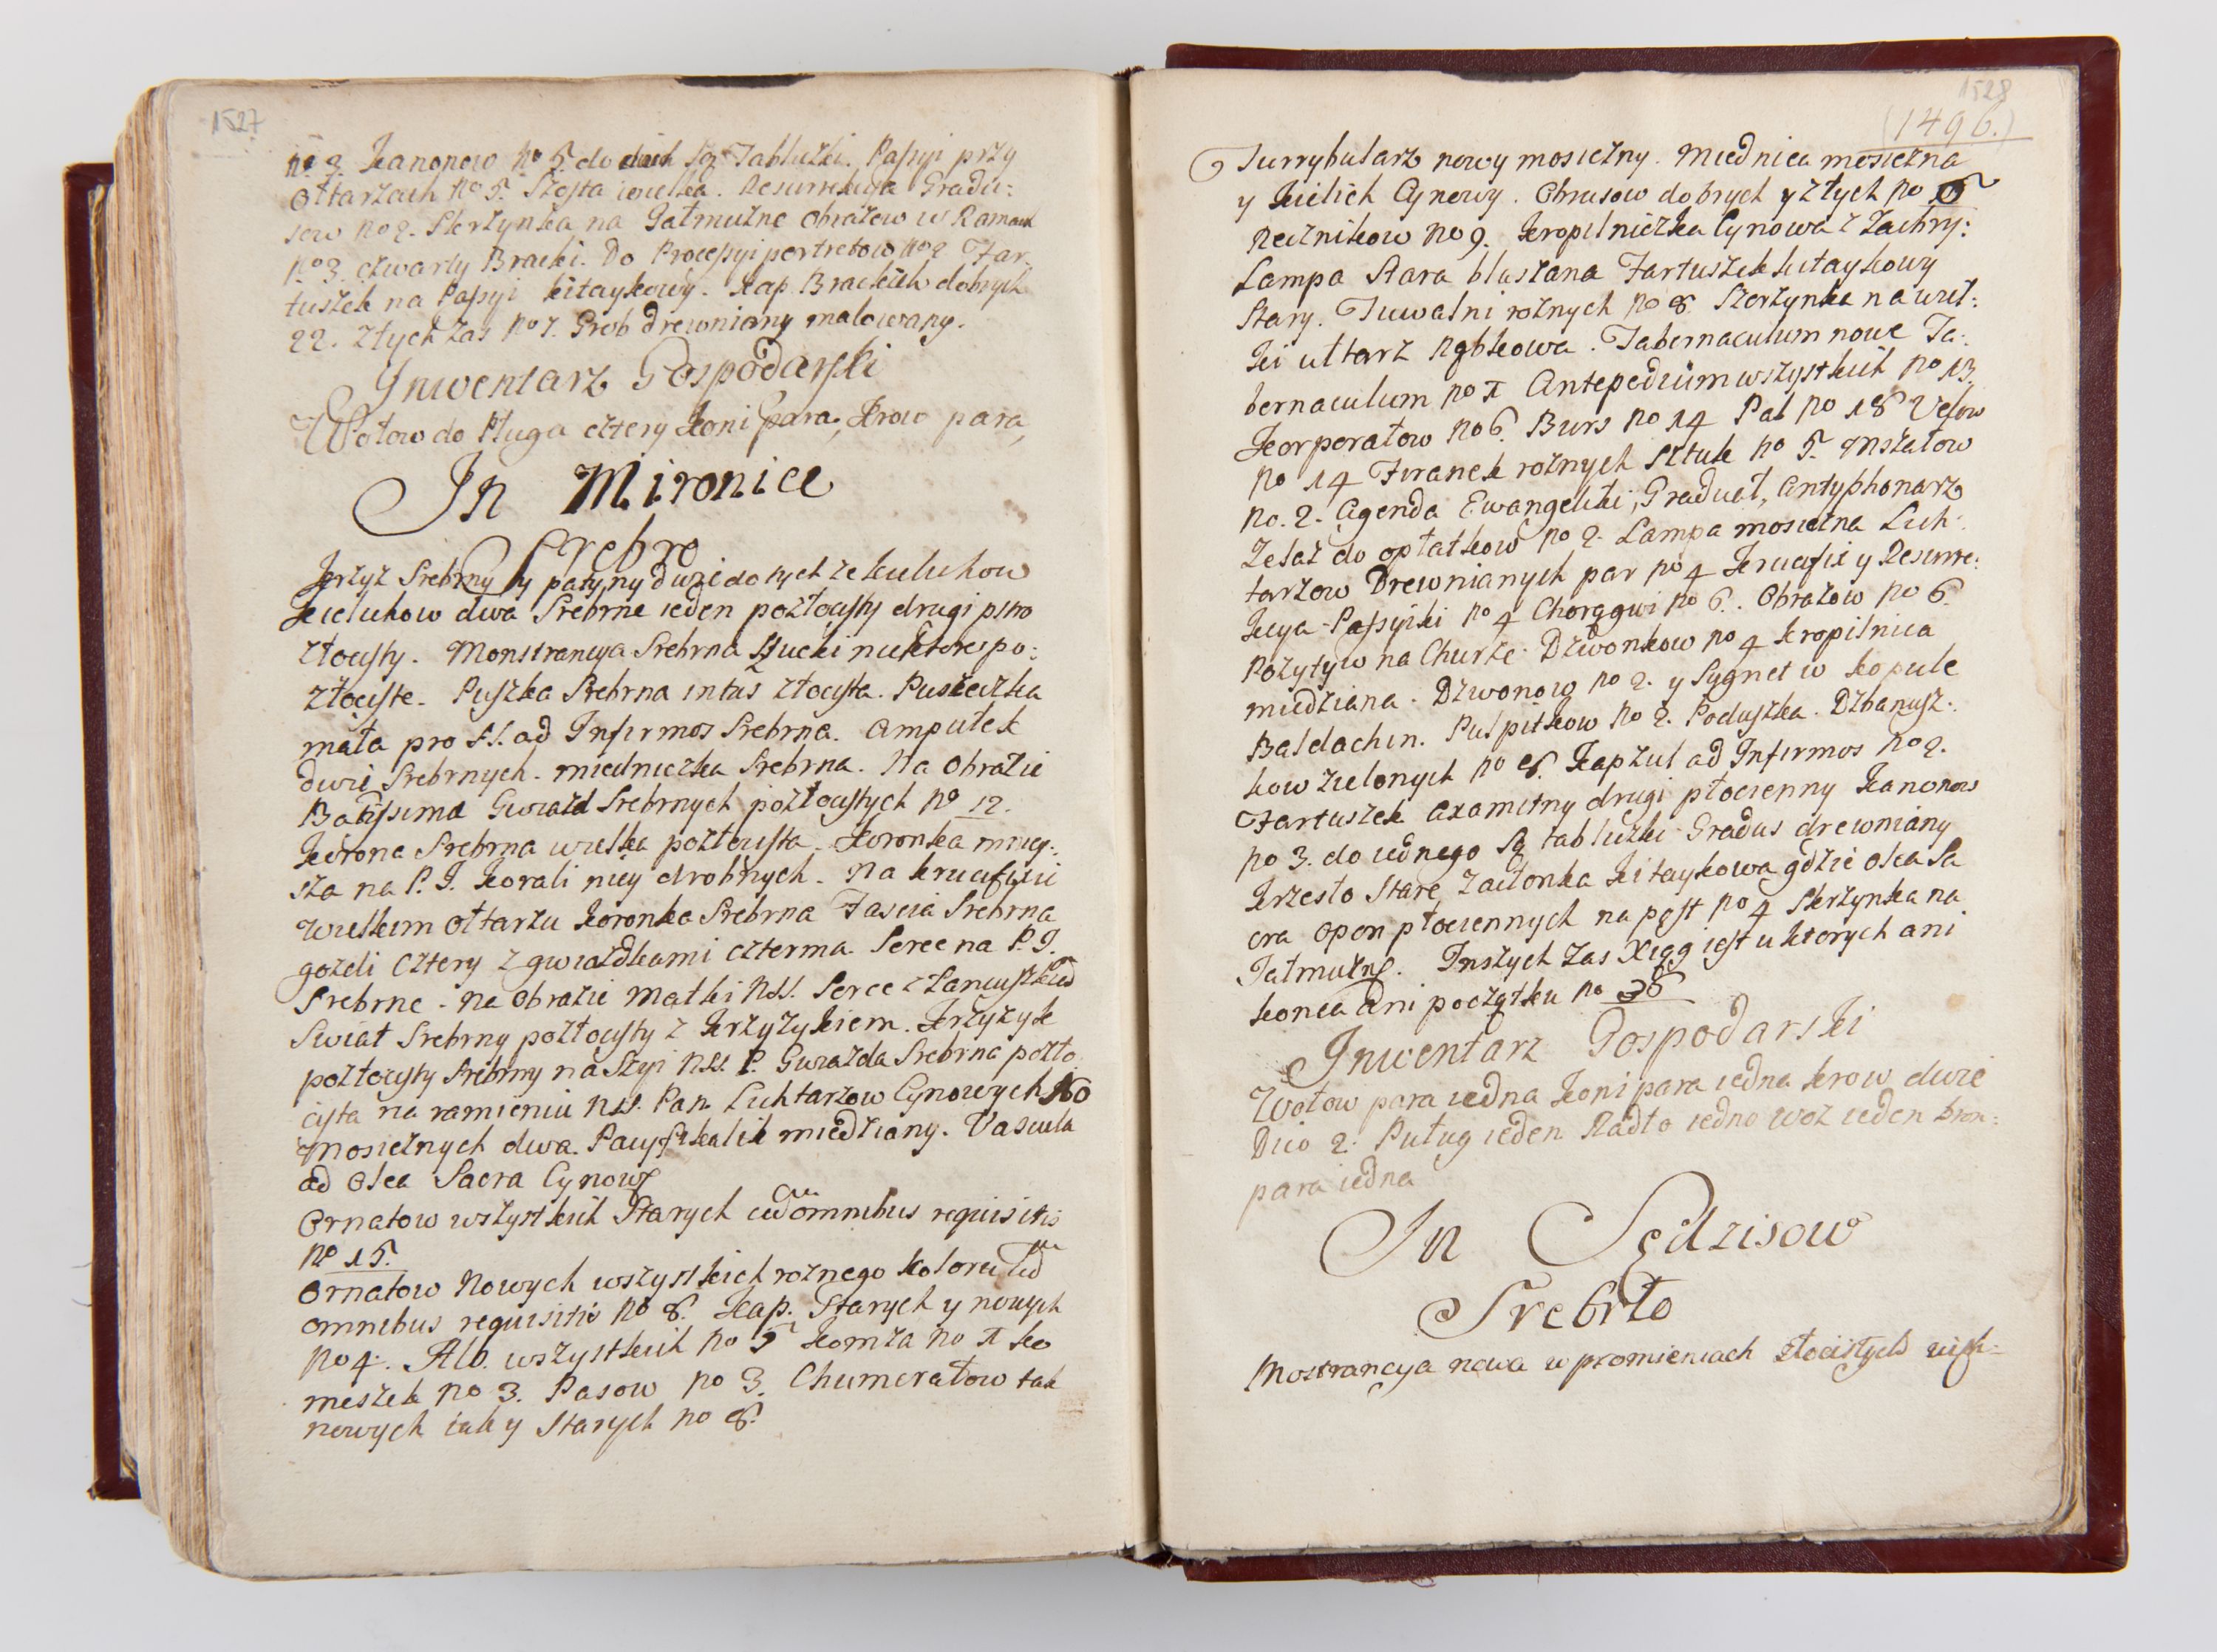 1527
No 2. Kanonow No 5. do dwóch Są Tabliczki. Passyi przy
Ołtarzach No 5. Szosta wielka. Resurrekcya Gradu:
sow No 2. Skrzynka na Jałmużnę Obrazow w Ramach
No 3. czwarty Bracki. Do Processyi portretow No 2 Far:
tuszek na Passyi kitaykowy. Kap Brackich dobrych
22. Złych zas No 7. Grob drewniany malowany.
Inwentarz Gospodarski
Wołow do Pługa cztery Koni para, Krow para,
In Mironice
Srebro
Krzyz Srebrny y patyny dwie do tych ze kielichow
Kielichow dwa Srebrne ieden pozłocisty drugi pstro
złocisty. Monstrancya Srebrna Sztucki niektore po:
złociste. Puszka Srebrna intus złocista. Puszeczka
mała pro SS. ad Infirmos Srebrna. Ampułek
dwie Srebrnych. miedniczka Srebrna. Na Obrazie
Batissima Gwiazd Srebrnych pozłocistych No 12.
Korona Srebrna wielka pozłocista. Koronka mniey:
sza na P. J. Korali niey drobnych. Na krucifixie
wielkim ołtarzu Koronka Srebrna Fascia Srebrna
gozdzi cztery z gwiazdkami czterma. Serce na P. J.
Srebrne. na Obrazie Matki NSS. Serce z Łancuszkiem
Swiat Srebrny pozłocisty z Krzyzykiem. Krzyzyk
pozłocisty Srebrny na Szyi NSS. P. Gwiazda Srebrna pozło
cista na ramieniu NSS. Pan. Lichtarzow Cynowych 10
mosięznych dwa. Pacyfikalik miedziany. Vascula
ad Olea Sacra Cynowe
Ornatow wszystkich Starych cum omnibus requisitis
No 15.
Ornatow Nowych wszystkich roznego koloru cum
omnibus requisitis No 8. Kap. Starych y nowych
No 4. Alb. wszystkich No 5 Komza No 1 Ko
meszek No 3. Pasow No 3. Chumerałow tak
nowych iak y Starych No 8.
1528
(1496.)
Turrybularz nowy mosięzny. Miednica mosięzna
y Kielich Cynowy. Obrusow dobrych y złych No
Ręcznikow No 9. Kropilniczka Cynowa z Zachry:
Lampa Stara blaszana Fartuszek kitaykowy
Stary. Tuwalni roznych No 8. Skrzynka na wiel:
ki ułtarz Rąbkowa. Tabernaculum nowe Ta:
bernaculum No 1 Antepedium wszystkich No 13.
Korporałow No 6. Burs No 14 Pal No 18 Velow
No 14 Firanek roznych sztuk No 5. Mszałow
No. 2. Agenda Ewangeliki, Graduał, Antyphonarz
Zelaz do opłatkow No 2. Lampa mosięzna Lich:
tarzow Drewnianych par No 4 Krucifix y Resurre:
kcya Passyiki No 4 Chorągwi No 6. Obrazow No 6.
Pozytyw na Churze. Dzwonkow No 4 Kropilnica
miedziana. Dzwonow No 2. y Sygnet w kopule
Baldachin. Pulpitkow No 2. Poduszka. Dzbanusz:
kow zielonych No 8. Kapzul ad Infirmos No 2.
Fartuszek axamitny drugi płocienny Kanonow
No 3. do iednego Są tabliczki Gradus drewniany
Krzesło Stare Zasłonka Kitaykowa gdzie Olea Sa
cra Opon płociennych na post No 4 Skrzynka na
Jałmuznę. Inszych zas Xiąg iest u ktorych ani
konca ani początku No 36
Inwentarz Gospodarski
Wołow para iedna Koni para iedna krow dwie
Dico 2. Puług ieden Radło iedno woz ieden bron:
para iedna
In Sędzisow
Srebrło
Mostrancya nowa w promieniach złocistych